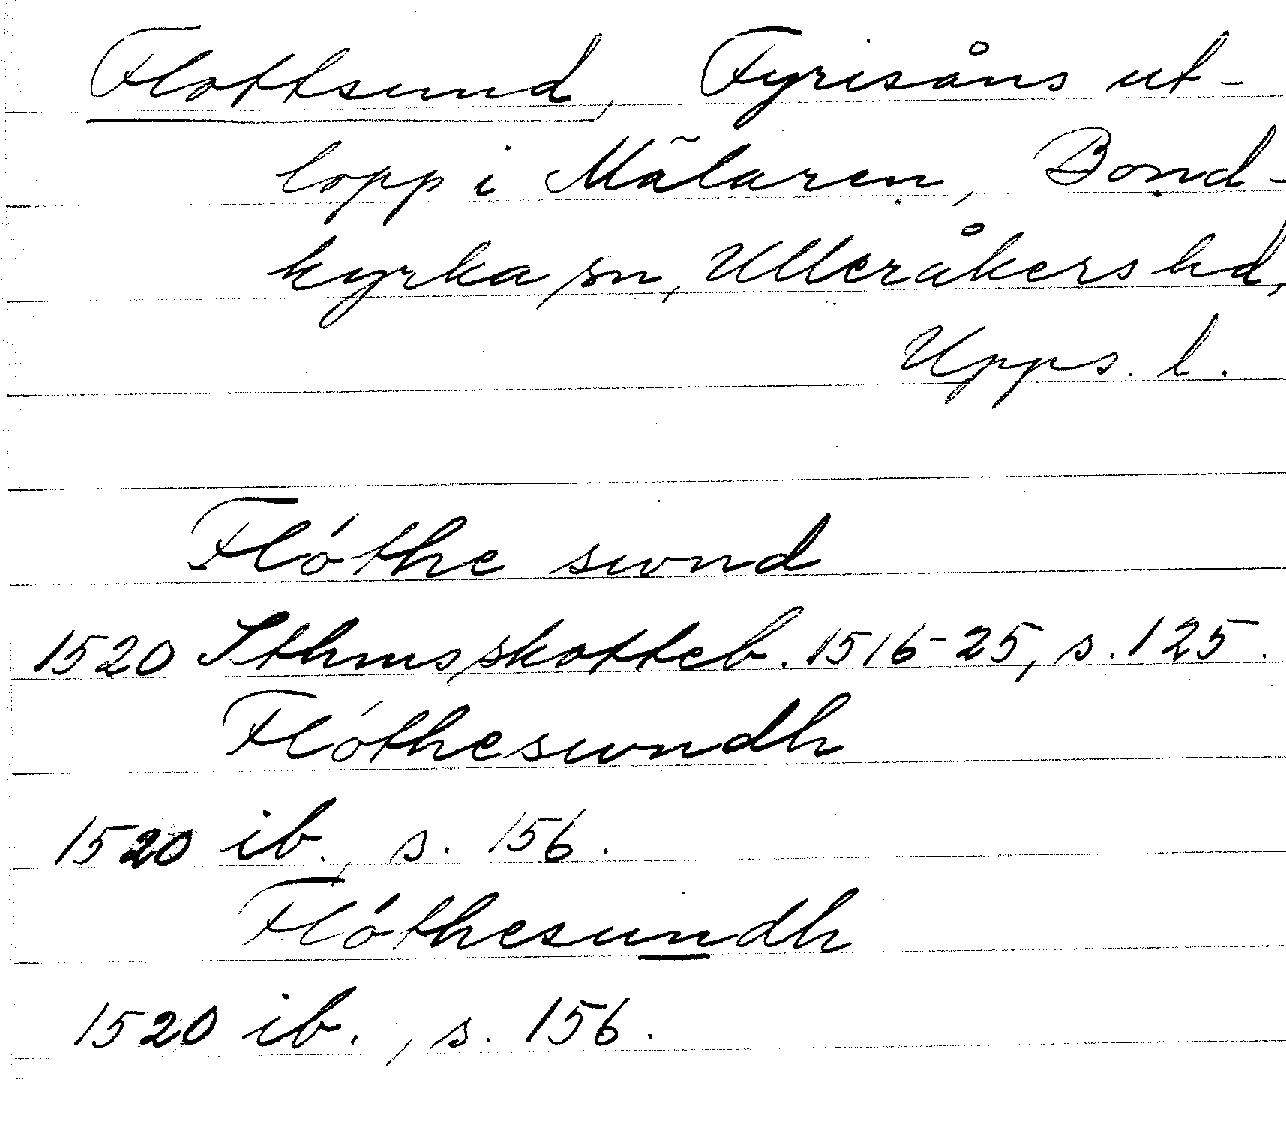 Flottsund, Fyrisåns ut-
lopp i Mälaren, Bond-
kyrka sn, Ulleråkers hd,
Upps. l.
Flóthe swnd
1520 Sthms skotteb. 1516-25, s. 125.
Flótheswndh
1520 ib., s. 156.
Flóthesundh
1520 ib., s. 156.